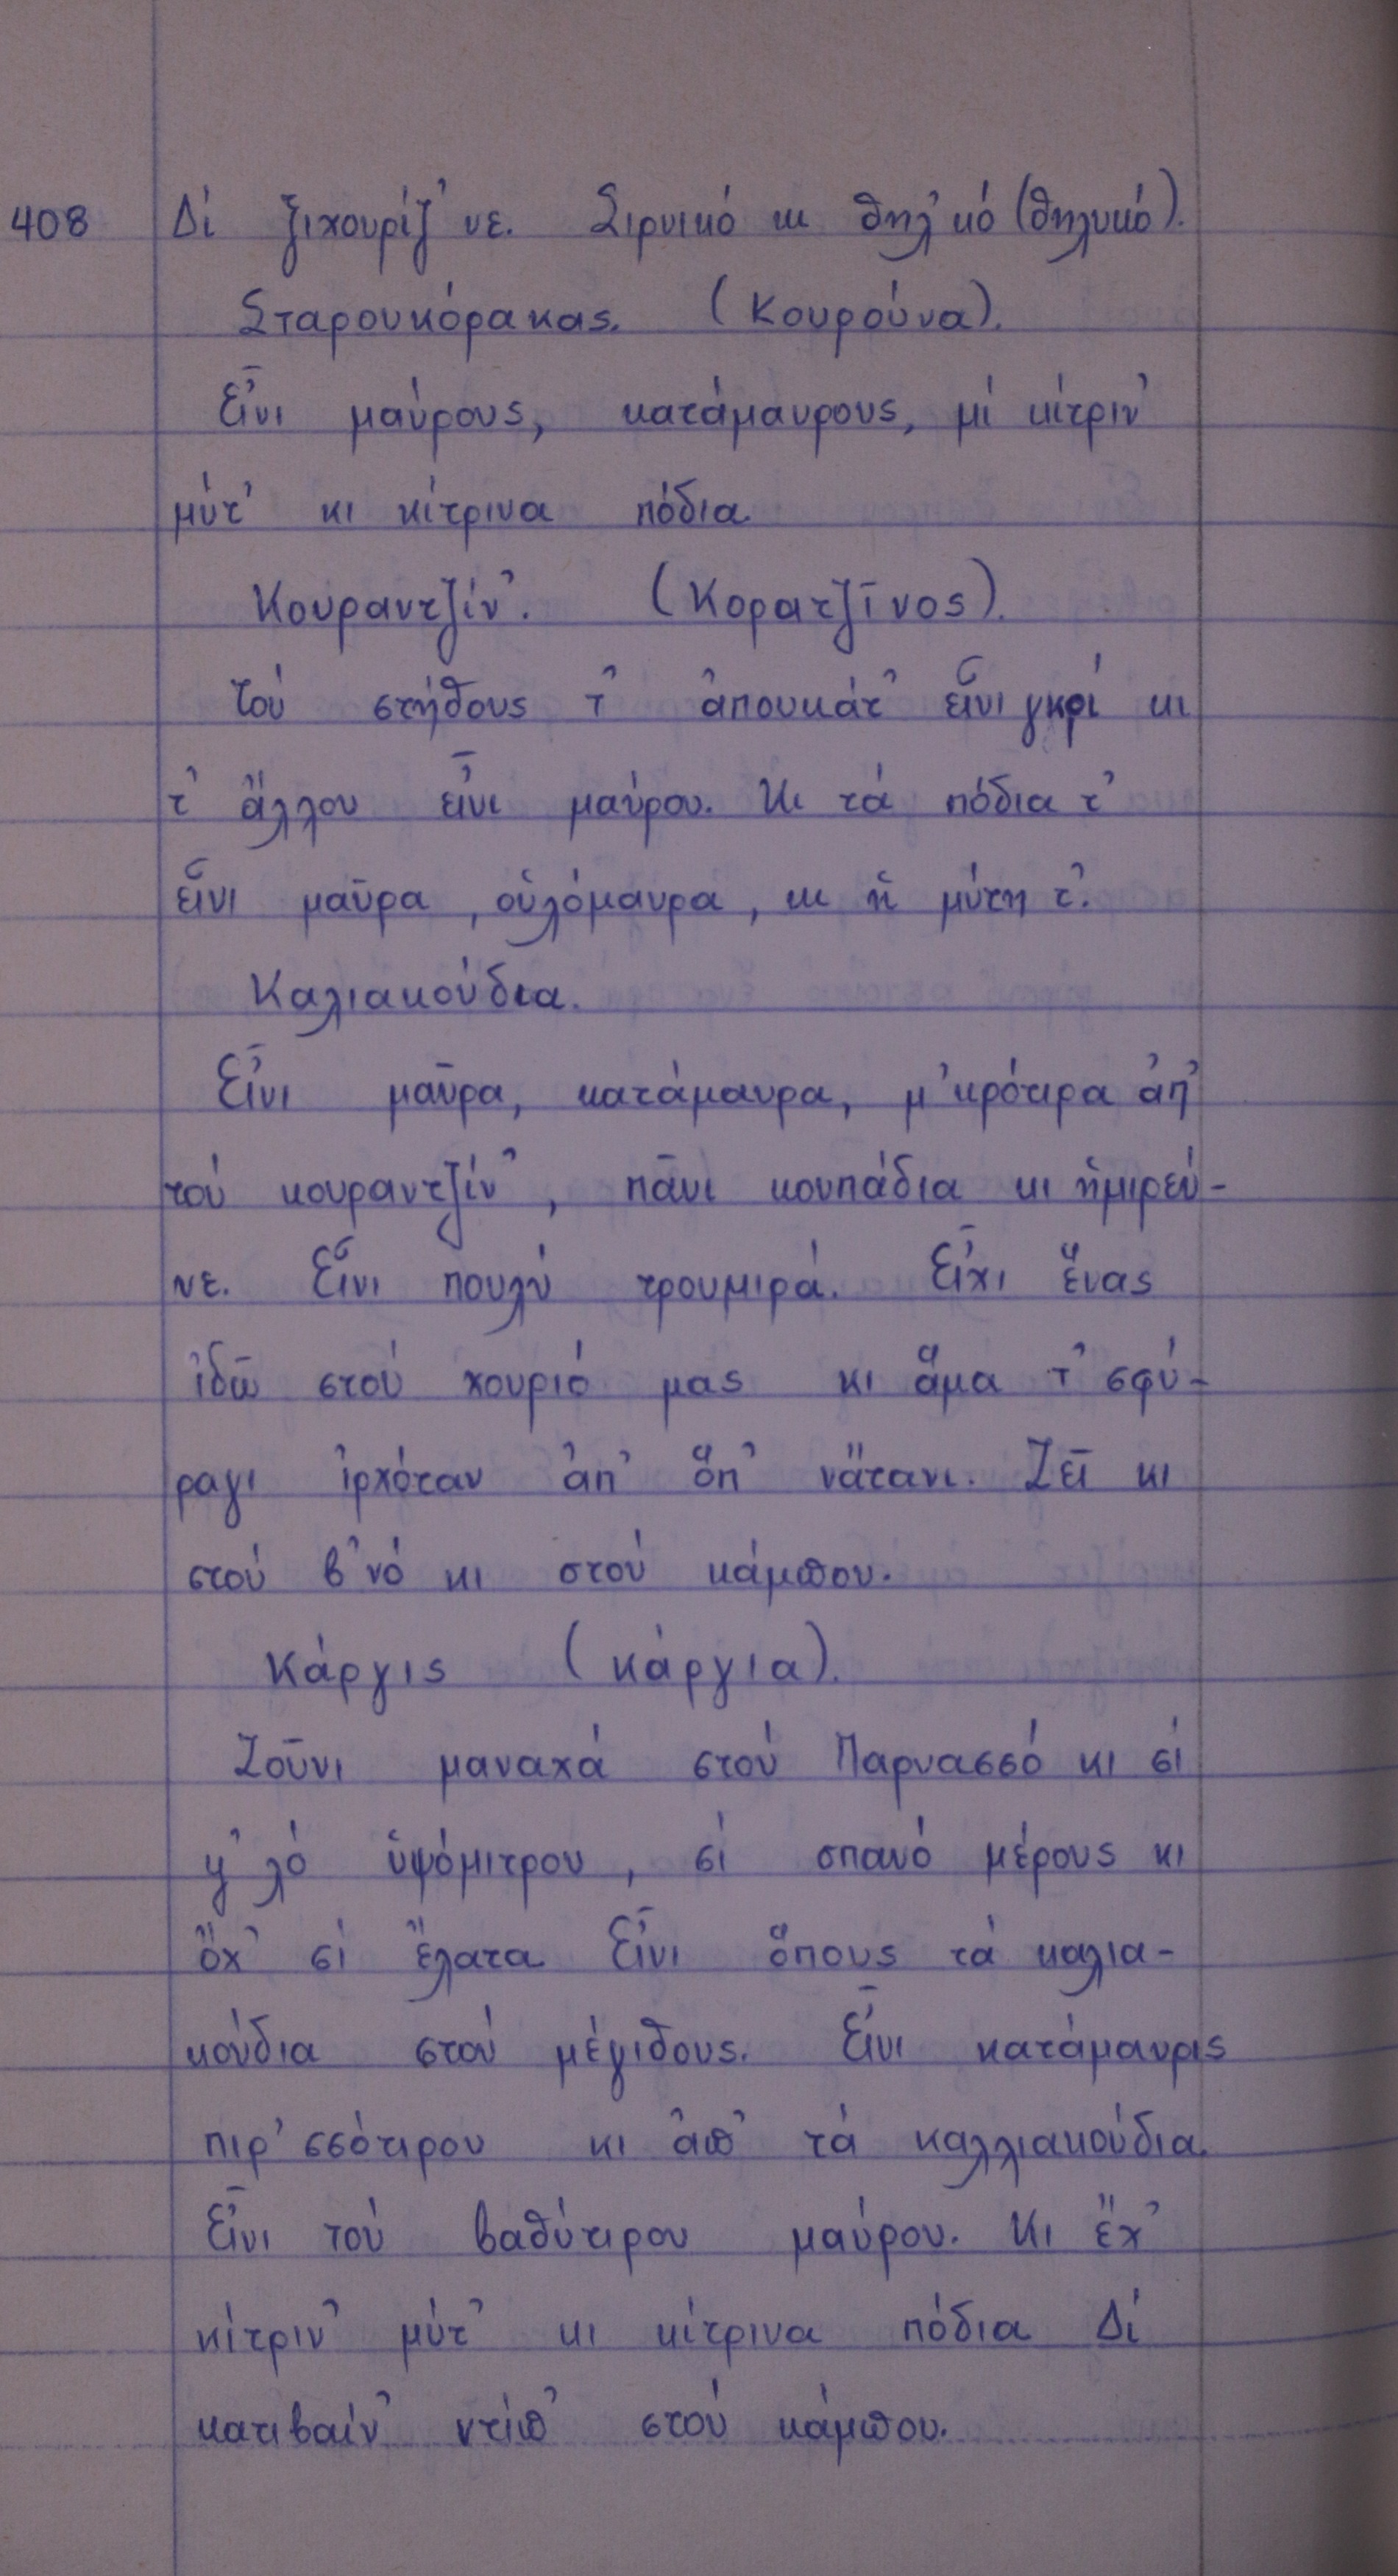 408 Δί ξιχουρίζ᾿νε. Σιρνικό κι θηλ᾿κό (θηλυκό).
Σταρουκόρακας. (Κουρούνα).
Εἶνι μαύρους, κατάμαυρους, μί κίτριν᾿
μύτ᾿ κι κίτρινα πόδια
Κουραντζίν᾿. (Κορατζῖνος).
Τού στήθους τ᾿ ἀπουκάτ᾿ εἶνι γκρί κι
τ᾿ ἄλλου εἶνι μαύρου. Κι τά πόδια τ᾿
εἶνι μαῦρα, οὑλόμαυρα, κι ἡ μύτη τ᾿.
Καλιακούδια.
Εἶνι μαῦρα, κατάμαυρα, μ᾿κρότιρα ἀπ᾿
τού κουραντζίν᾿, πᾶνι κουπάδια κι ἡμιρεύ-
νε. Εἶνι πουλύ τρουμιρά. Εἶχι ἕνας
ἰδῶ στού χουριό μας κι ἅμα τ᾿ σφύ-
ραγι ἰρχόταν ἀπ᾿ ὅπ᾿ νἄτανι. Ζεῖ κι
στού β᾿νό κι στού κάμπου.
Κάργις (κάργια).
Ζοῦνι μαναχά στού Παρνασσό κι σί
ψ᾿λό ὑψόμιτρου, σί σπανό μέρους κι
ὄχ᾿ σί ἔλατα Εἶνι ὅπους τά καλια-
κούδια στού μέγιθους. Εἶνι κατάμαυρις
πιρ᾿σσότιρου κι ἀπ᾿ τά καλλιακούδια.
Εἶνι τού βαθύτιρου μαύρου. Κι ἔχ᾿
κίτριν᾿ μύτ᾿ κι κίτρινα πόδια Δί
κατιβαίν᾿ ντίπ᾿ στού κάμπου.